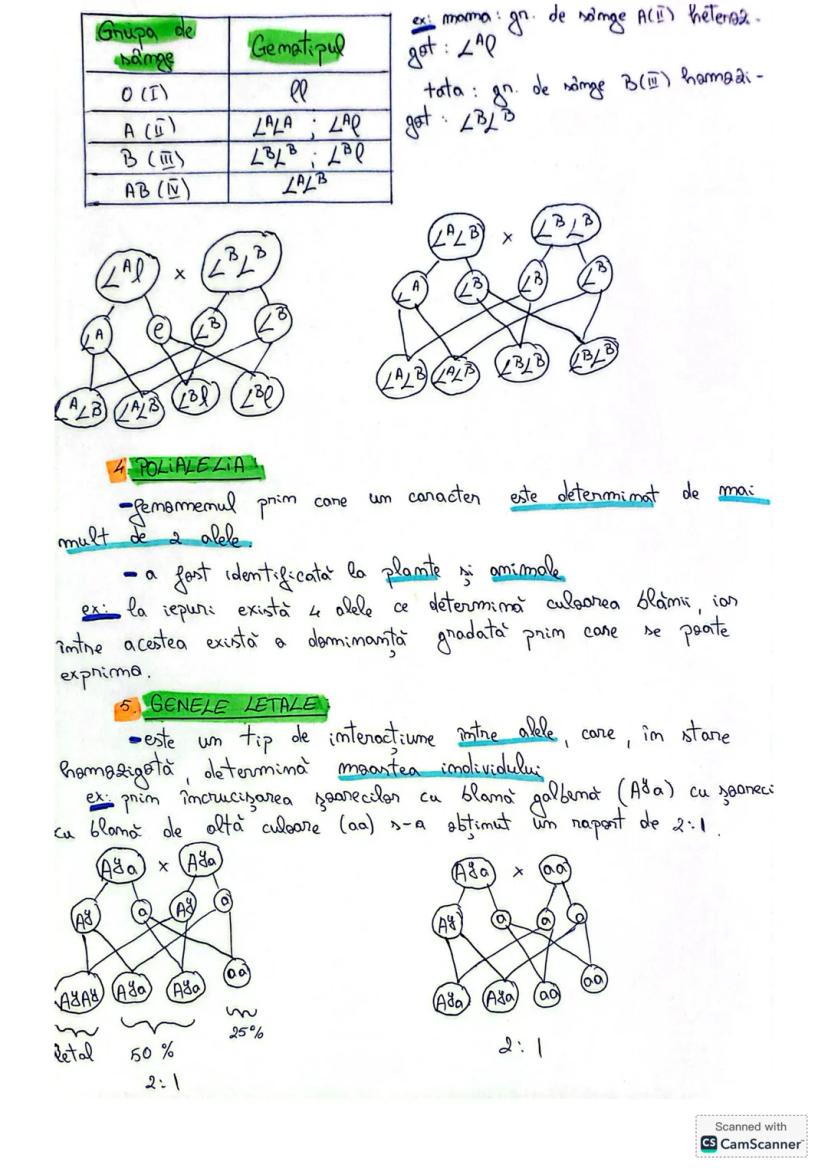 Grupa de sânge
Genotipul
O (I)
ll
A (II)
LᴬLᴬ ; Lᴬl
B (III)
LᴮLᴮ ; Lᴮl
AB (IV)
LᴬLᴮ
ex: mama: gr. de sânge A(II) heteroz-
got : Lᴬl
tata : gr. de sânge B(III) homozi-
got : LᴮLᴮ
Lᴬl x LᴮLᴮ
Lᴬ l Lᴮ Lᴮ
LᴬLᴮ LᴬLᴮ Lᴮl Lᴮl
LᴬLᴮ x LᴮLᴮ
Lᴬ Lᴮ Lᴮ Lᴮ
LᴬLᴮ LᴬLᴮ LᴮLᴮ LᴮLᴮ
4 POLIALELIA:
-fenomenul prin care un caracter este determinat de mai
mult de 2 alele.
- a fost identificată la plante și animale
ex: la iepuri există 4 alele ce determină culoarea blănii, iar
între acestea există o dominanță gradată prin care se poate
exprima.
5. GENELE LETALE:
-este un tip de interacțiune între alele, care, în stare
homozigotă, determină moartea individului
ex: prin încrucișarea șoarecilor cu blană galbenă (Aʸa) cu șoareci
cu blană de altă culoare (aa) s-a obținut un raport de 2:1.
Aʸa x Aʸa
Aʸ a Aʸ a
AʸAʸ Aʸa Aʸa aa
letal 50 % 25%
2:1
Aʸa x aa
Aʸ a a a
Aʸa Aʸa aa aa
2: 1
Scanned with
CS CamScanner